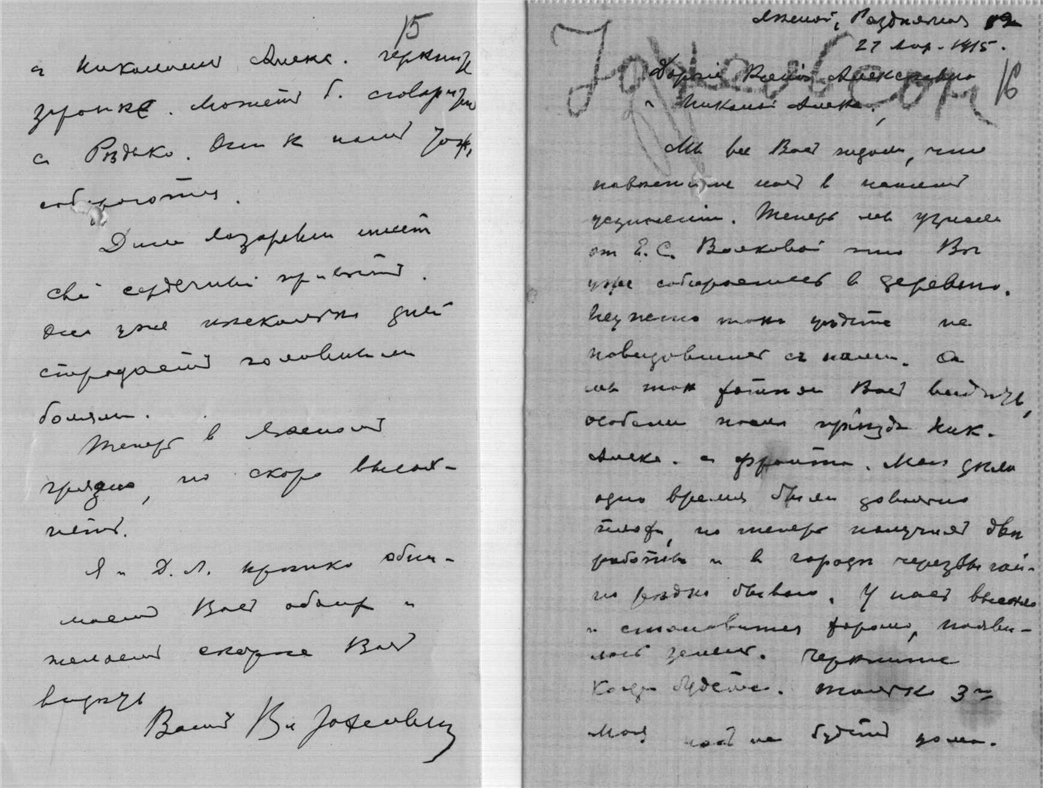 15
и Николаемъ Алекс. черкните
заранѣе. Можетъ б. сговоритесь
с Они к намъ тож.
собираются.
Дина Лазаревна шлетъ
свой сердечный привѣтъ.
Она уже нѣсколько дней
страдаетъ головными
болями.
Теперь в Лесномъ
грязно, но скоро высох-
нетъ.
Я и Д. Л. крѣпко обни-
маемъ Васъ обоихъ и
желаемъ скорѣе Васъ
видѣть
Вашъ Вл Іохельсон
Лесной,
27 1915.
Іохельсон 16
Дорогіе Алексѣевна
и Николай Алекс.,
Мы все Васъ ждали, что
навѣстите насъ в нашемъ
уединеніи. Теперь мы узнали
от Е. С. Волковой что Вы
уже собираетесь в деревню.
Неужели такъ уѣдете не
повидавшись съ нами. А
мы такъ хотѣли Васъ видѣть,
особенно послѣ пріѣзда Ник.
Алекс. с фронта. Мои дѣла
одно время были довольно
плохи, но теперь получилъ двѣ
работы и в городѣ чрезвычай-
но рѣдко бываю. У насъ высохло
и становится хорошо, появи-
лась зелень. Черкните
когда будете. Только 3го
Мая насъ не будетъ дома.